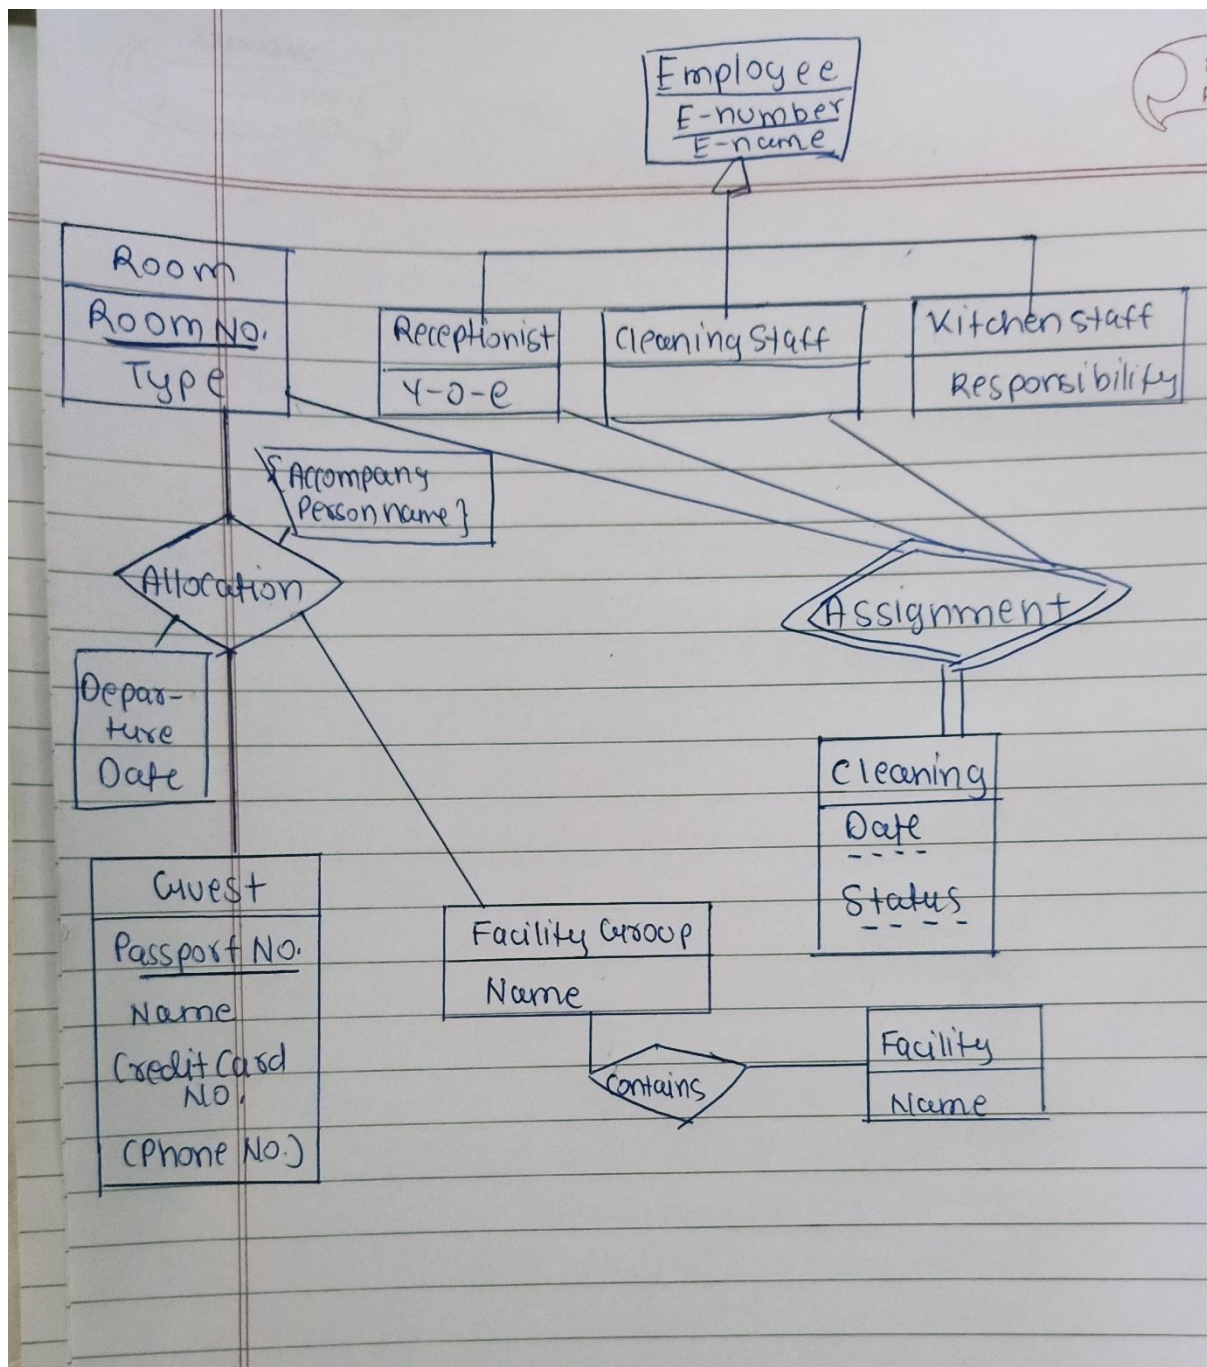 Employee
E-number
E-name
Room
Room No.
Type
Receptionist
Y-O-e
Cleaning Staff
Kitchen staff
Responsibility
{Accompany
Person name}
Allocation
Depar-
ture
Date
Assignment
Cleaning
Date
Status
Guest
Passport No.
Name
Credit Card
No.
(Phone No.)
Facility Group
Name
Contains
Facility
Name